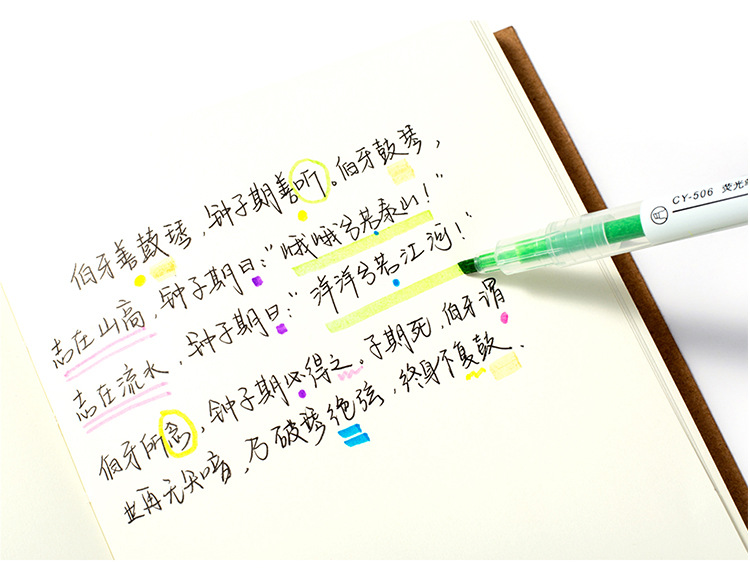 伯牙善鼓琴，钟子期善听。伯牙鼓琴，
志在山高，钟子期曰：“峨峨兮若泰山！”
志在流水，钟子期曰：“洋洋兮若江河！”
伯牙所念，钟子期必得之。子期死，伯牙谓
世再无知音，乃破琴绝弦，终身不复鼓.
CY-506 荧光